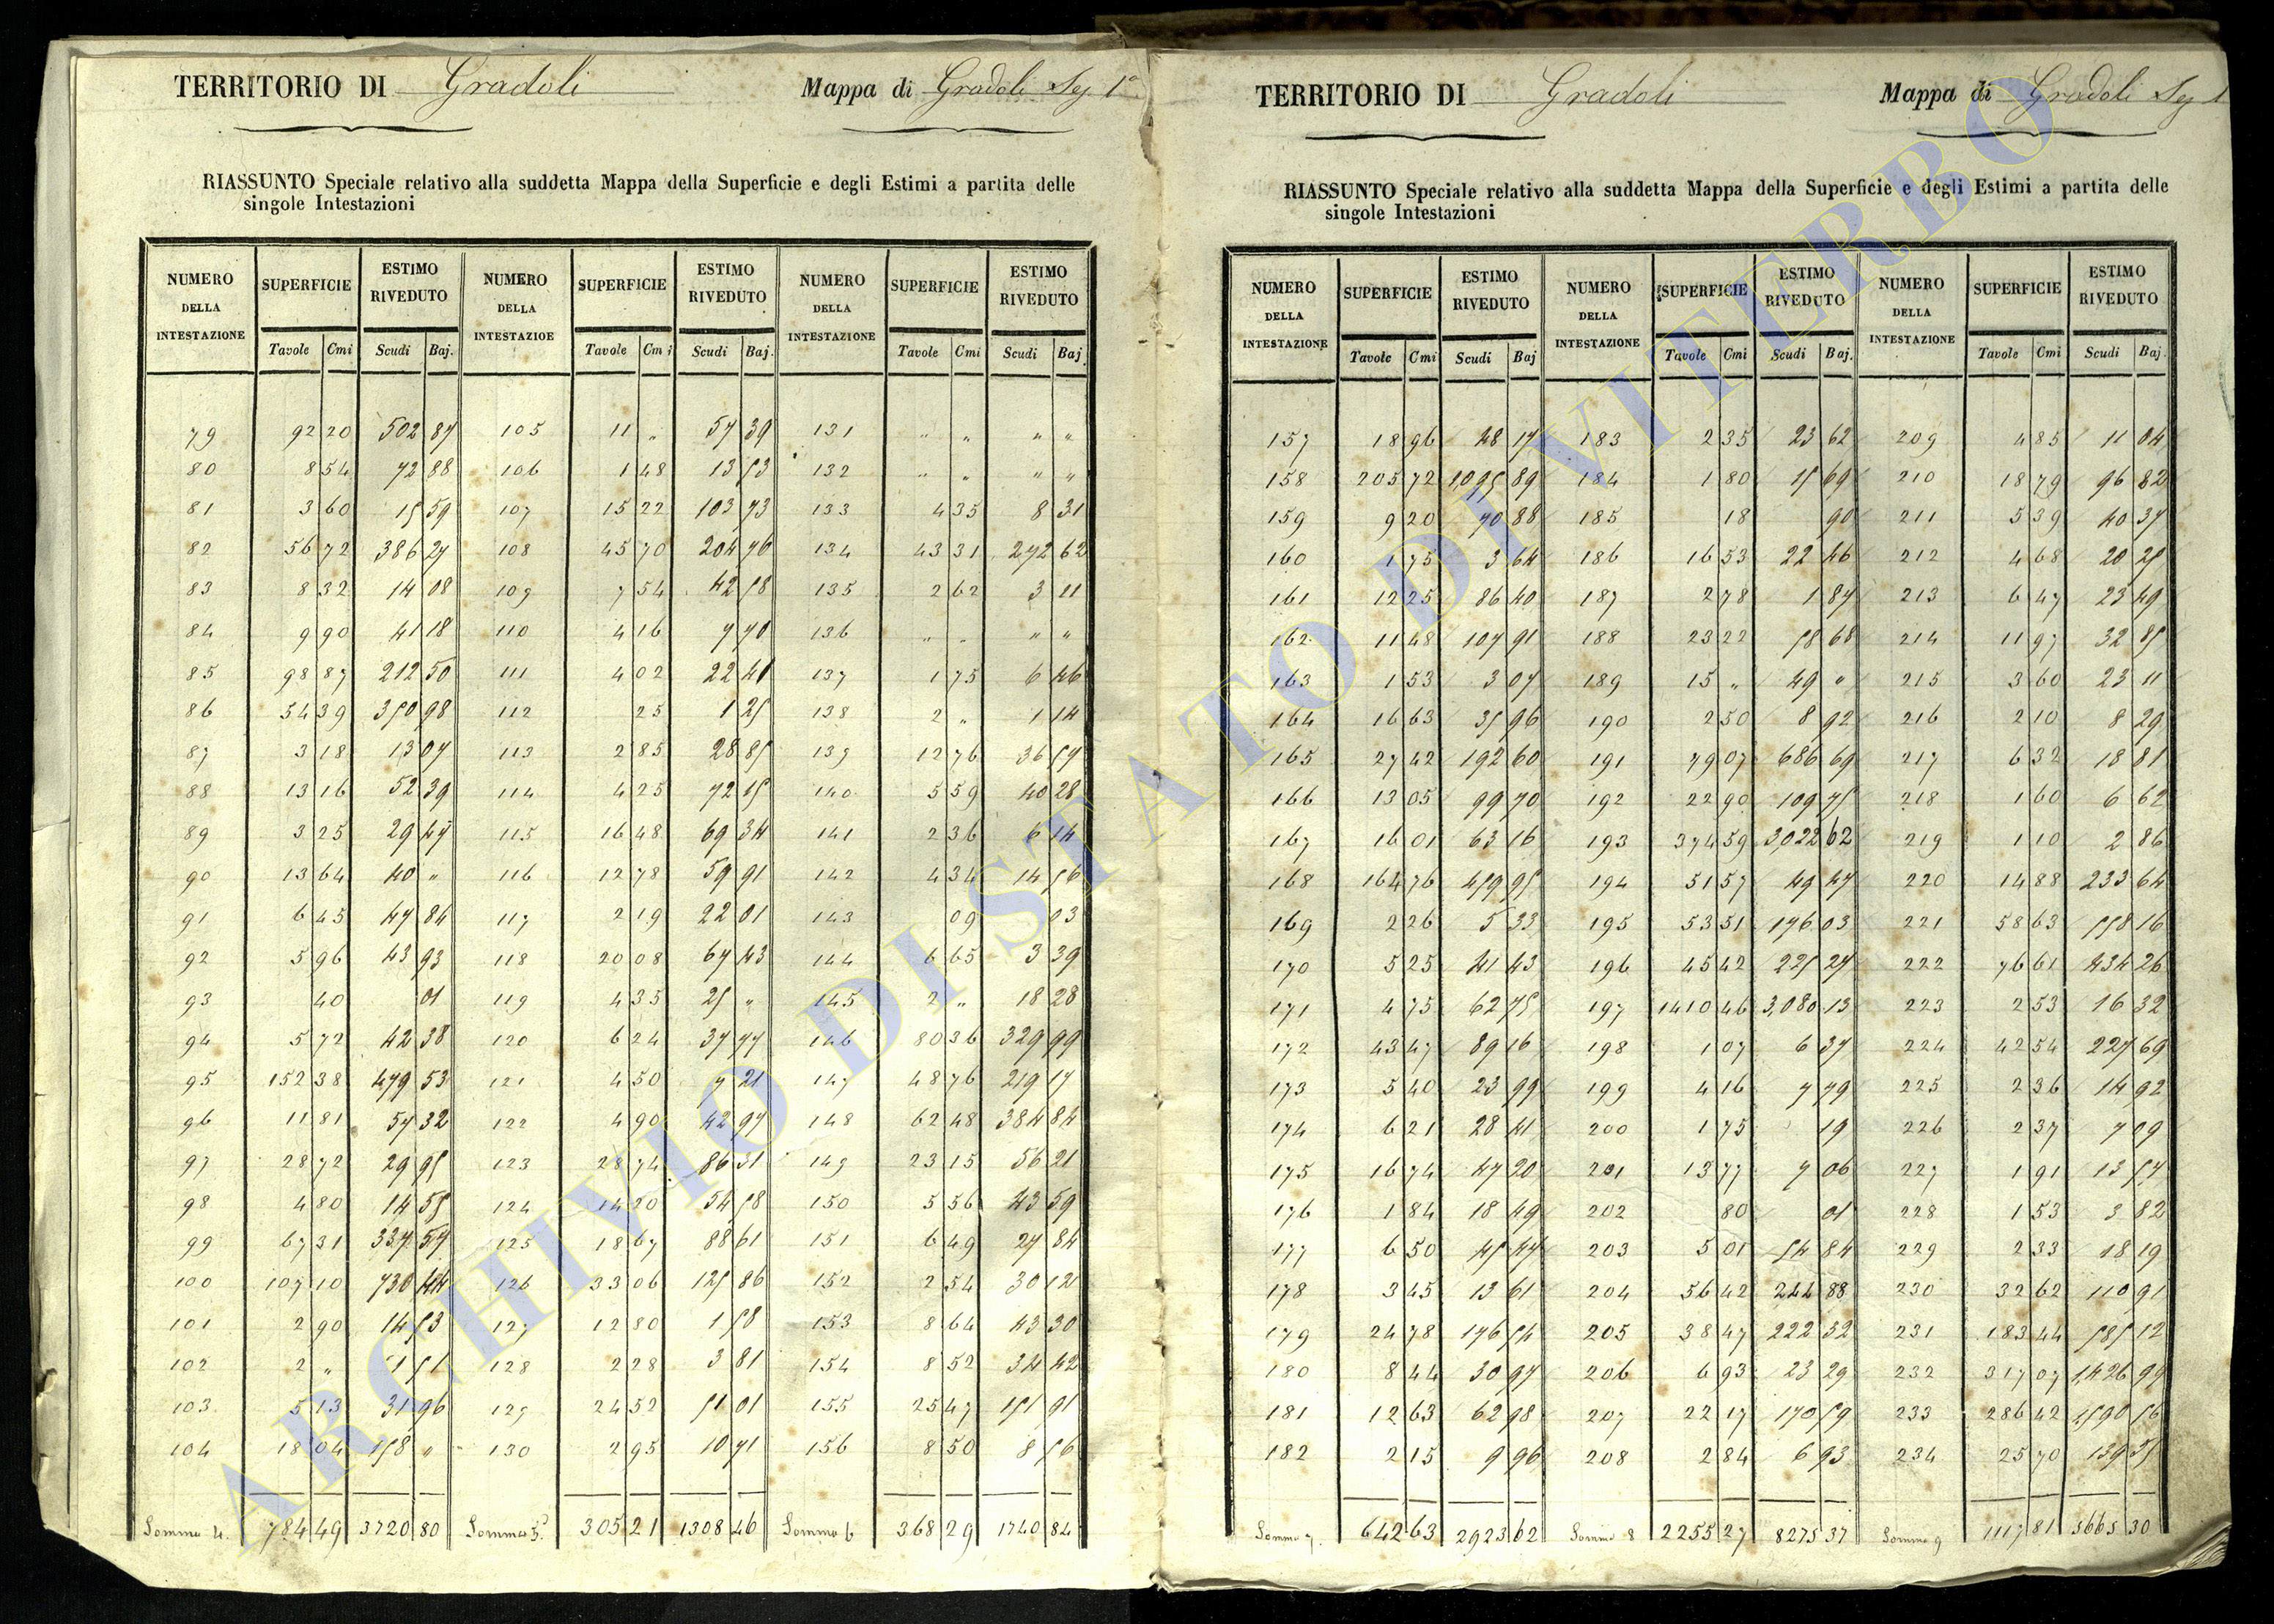 TERRITORIO DI Gradoli Mappa di Gradoli Seg 1ª
RIASSUNTO Speciale relativo alla suddetta Mappa della Superficie e degli Estimi a partita delle
singole Intestazioni
NUMERO DELLA INTESTAZIONE SUPERFICIE ESTIMO RIVEDUTO NUMERO DELLA INTESTAZIOE SUPERFICIE ESTIMO RIVEDUTO NUMERO DELLA INTESTAZIONE SUPERFICIE ESTIMO RIVEDUTO
Tavole Cmi Scudi Baj. Tavole Cmi Scudi Baj. Tavole Cmi Scudi Baj.
79 92 20 502 87 105 11 „ 57 39 131 „ „ „ „
80 8 54 72 88 106 1 48 13 53 132 „ „ „ „
81 3 60 15 59 107 15 22 103 73 133 4 35 8 31
82 56 72 386 27 108 45 70 204 76 134 43 31 272 62
83 8 32 14 08 109 7 54 42 58 135 2 62 3 11
84 9 90 41 18 110 4 16 7 70 136 „ „ „ „
85 98 87 212 50 111 4 02 22 41 137 1 75 6 46
86 54 39 350 98 112 25 1 25 138 2 „ 1 14
87 3 18 13 07 113 2 85 28 85 139 12 76 36 59
88 13 16 52 39 114 4 25 72 15 140 5 59 40 28
89 3 25 29 47 115 16 48 69 34 141 2 36 6 14
90 13 64 40 „ 116 12 78 59 91 142 4 34 14 56
91 6 45 47 84 117 2 19 22 01 143 09 03
92 5 96 43 93 118 20 08 67 43 144 6 65 3 39
93 40 01 119 4 35 25 „ 145 2 „ 18 28
94 5 72 42 38 120 6 24 37 77 146 80 36 329 99
95 152 38 479 53 121 4 50 7 21 147 48 76 219 17
96 11 81 57 32 122 4 90 42 97 148 62 48 384 84
97 28 72 29 95 123 28 74 86 31 149 23 15 56 21
98 4 80 14 55 124 14 20 54 58 150 5 56 43 59
99 67 31 337 57 125 18 67 88 61 151 6 49 27 84
100 107 10 730 44 126 33 06 125 86 152 2 54 30 12
101 2 90 14 53 127 12 80 1 58 153 8 64 43 30
102 2 „ 51 51 128 2 28 3 81 154 8 52 34 42
103 5 13 31 96 129 24 52 51 01 155 25 47 151 91
104 18 04 158 „ 130 2 95 10 71 156 8 50 8 56
Somma 4. 784 49 3720 80 Somma 5ª 305 21 1308 46 Somma 6 368 29 1740 84
TERRITORIO DI Gradoli Mappa di Gradoli Seg 1
RIASSUNTO Speciale relativo alla suddetta Mappa della Superficie e degli Estimi a partita delle
singole Intestazioni
NUMERO DELLA INTESTAZIONE SUPERFICIE ESTIMO RIVEDUTO NUMERO DELLA INTESTAZIONE SUPERFICIE ESTIMO RIVEDUTO NUMERO DELLA INTESTAZIONE SUPERFICIE ESTIMO RIVEDUTO
Tavole Cmi Scudi Baj Tavole Cmi Scudi Baj. Tavole Cmi Scudi Baj.
157 18 96 48 17 183 2 35 23 62 209 4 85 11 04
158 205 72 1,095 89 184 1 80 15 69 210 18 79 96 82
159 9 20 70 88 185 18 90 211 5 39 40 37
160 1 75 3 64 186 16 53 22 46 212 4 68 20 25
161 12 25 86 40 187 2 78 1 87 213 6 47 23 49
162 11 48 107 91 188 23 22 58 68 214 11 97 32 85
163 1 53 3 07 189 15 „ 49 „ 215 3 60 23 11
164 16 63 35 96 190 2 50 8 92 216 2 10 8 29
165 27 42 192 60 191 79 07 686 69 217 6 32 18 81
166 13 05 99 70 192 22 90 109 75 218 1 60 6 62
167 16 01 63 16 193 374 59 3,022 62 219 1 10 2 86
168 164 76 459 95 194 51 57 49 47 220 14 88 233 64
169 2 26 5 33 195 53 51 176 03 221 58 63 558 16
170 5 25 41 43 196 45 42 225 27 222 76 61 434 26
171 4 75 62 75 197 1410 46 3,080 13 223 2 53 16 32
172 43 47 89 16 198 1 07 6 37 224 42 54 227 69
173 5 40 23 99 199 4 16 7 79 225 2 36 14 92
174 6 21 28 41 200 1 75 19 226 2 37 7 09
175 16 74 47 20 201 13 77 7 06 227 1 91 13 57
176 1 84 18 49 202 80 01 228 1 53 3 82
177 6 50 45 47 203 5 01 54 84 229 2 33 18 19
178 3 45 13 61 204 56 42 244 88 230 32 62 110 91
179 24 78 176 54 205 38 47 222 32 231 183 44 585 12
180 8 44 30 97 206 6 93 23 29 232 317 07 1,426 99
181 12 63 62 98 207 22 17 170 59 233 286 42 1,590 56
182 2 15 9 96 208 2 84 6 93 234 25 70 139 35
Somma 7. 642 63 2923 62 Somma 8 2255 27 8275 37 Somma 9 1117 81 5665 30
ARCHIVIO DI STATO DI VITERBO